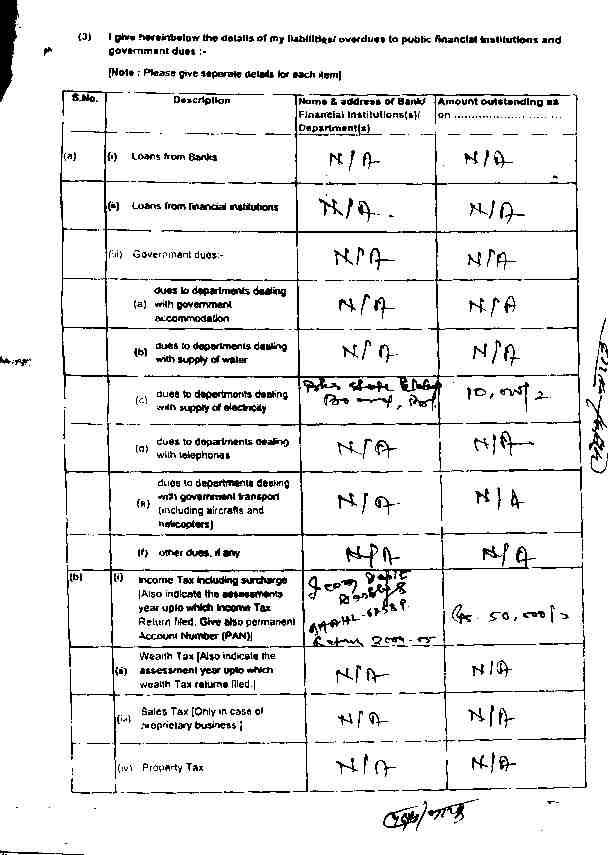 (3) I give hereinbelow the details of my liabilities/ overdues to public financial institutions and
government dues :-
[Note : Please give seperate details for each item]
S.No. Description Name & address of Bank/ Amount outstanding as
Financial Institutions(s)/ on ..............................
Department(s)
(a) (i) Loans from Banks N/A N/A
(ii) Loans from financial institutions N/A N/A
(iii) Government dues:- N/A N/A
dues to departments dealing
(a) with government N/A N/A
accommodation
(b) dues to departments dealing N/A N/A
with supply of water
(c) dues to departments dealing
with supply of electricity
(d) dues to departments dealing N/A N/A
with telephones
dues to departments dealing
(e) with government transport N/A N/A
(including aircrafts and
helicopters)
(f) other dues, if any N/A N/A
(b) (i) Income Tax including surcharge
[Also indicate the assessments
year upto which Income Tax Rs. 50,000/=
Return filed. Give also permanent
Account Number (PAN)]
Wealth Tax [Also indicate the
(ii) assessment year upto which N/A N/A
wealth Tax returns filed.]
(iii) Sales Tax [Only in case of N/A N/A
proprietary business ]
(iv) Property Tax N/A N/A